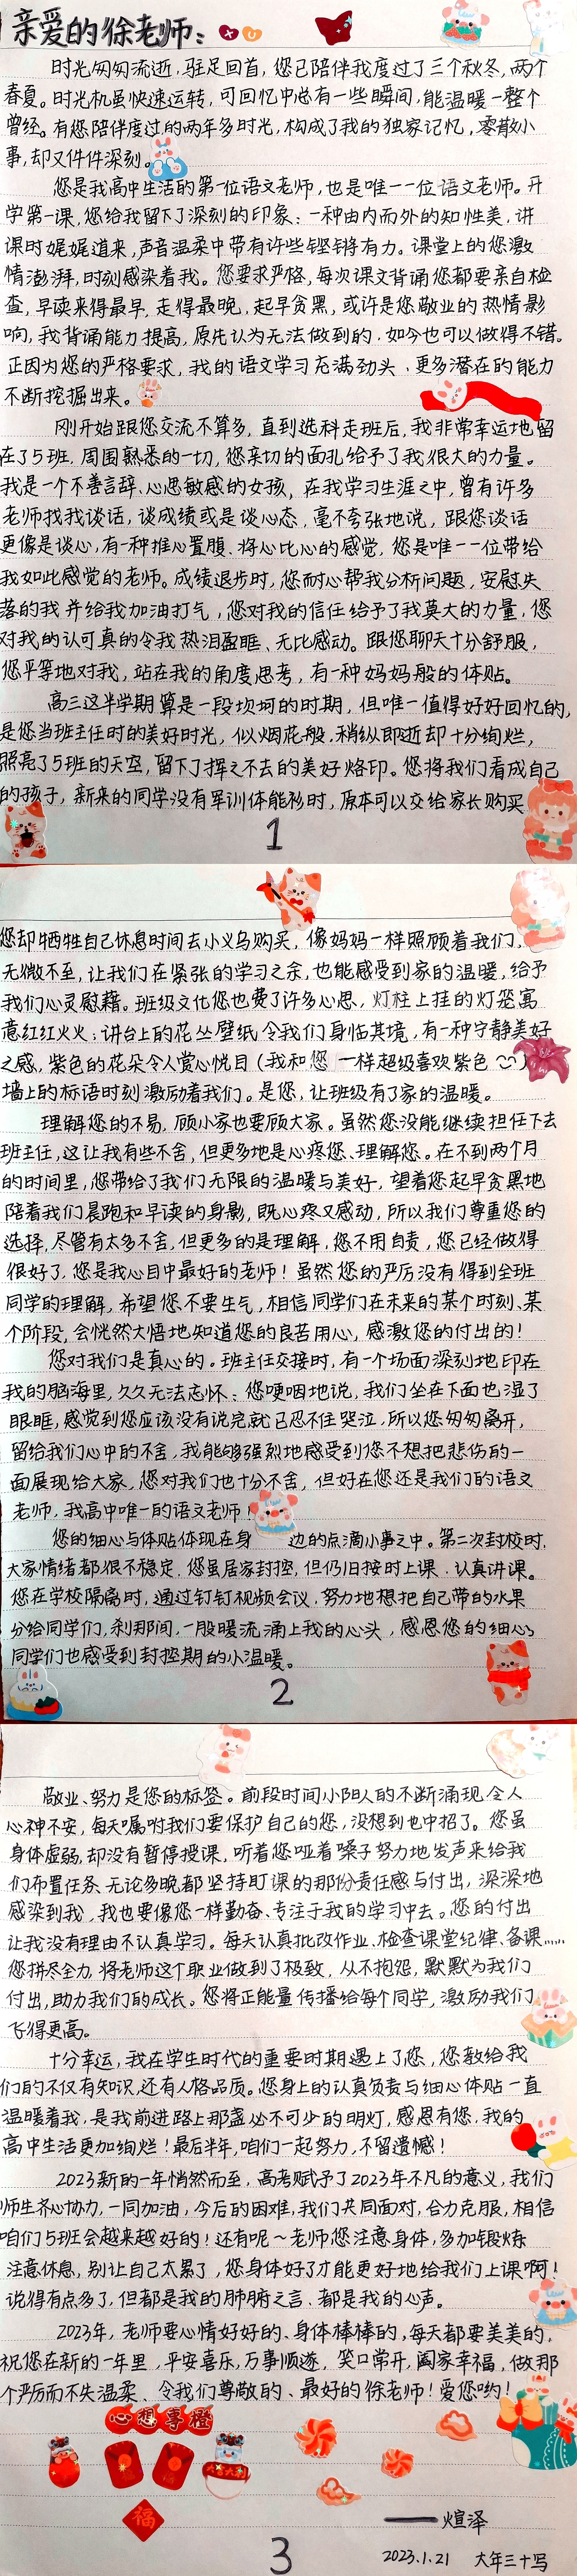 亲爱的徐老师：
XU
时光匆匆流逝，驻足回首，您已陪伴我度过了三个秋冬，两个
春夏。时光机虽快速运转，可回忆中总有一些瞬间，能温暖一整个
曾经。有您陪伴度过的两年多时光，构成了我的独家记忆，零散小
事，却又件件深刻。
您是我高中生活的第一位语文老师，也是唯一一位语文老师。开
学第一课，您给我留下了深刻的印象：一种由内而外的知性美，讲
课时娓娓道来，声音温柔中带有许些铿锵有力。课堂上的您激
情澎湃，时刻感染着我。您要求严格，每次课文背诵您都要亲自检
查，早读来得最早，走得最晚，起早贪黑，或许是您敬业的热情影
响，我背诵能力提高，原先认为无法做到的，如今也可以做得不错。
正因为您的严格要求，我的语文学习充满劲头、更多潜在的能力
不断挖掘出来。
刚开始跟您交流不算多，直到选科走班后，我非常幸运地留
在了5班，周围熟悉的一切，您亲切的面孔给予了我很大的力量。
我是一个不善言辞、心思敏感的女孩，在我学习生涯之中，曾有许多
老师找我谈话，谈成绩或是谈心态，毫不夸张地说，跟您谈话
更像是谈心，有一种推心置腹、将心比心的感觉，您是唯一一位带给
我如此感觉的老师。成绩退步时，您耐心帮我分析问题，安慰失
落的我并给我加油打气，您对我的信任给予了我莫大的力量，您
对我的认可真的令我热泪盈眶、无比感动。跟您聊天十分舒服，
您平等地对我，站在我的角度思考，有一种妈妈般的体贴。
高三这半学期算是一段坎坷的时期，但唯一值得好好回忆的，
是您当班主任时的美好时光，似烟花般，稍纵即逝却十分绚烂，
照亮了5班的天空，留下了挥之不去的美好烙印。您将我们看成自己
的孩子，新来的同学没有军训体能衫时，原本可以交给家长购买
1
您却牺牲自己休息时间去小义乌购买，像妈妈一样照顾着我们，
无微不至，让我们在紧张的学习之余，也能感受到家的温暖，给予
我们心灵慰藉。班级文化您也费了许多心思，灯柱上挂的灯笼寓
意红红火火；讲台上的花丛壁纸令我们身临其境，有一种宁静美好
之感，紫色的花朵令人赏心悦目（我和您一样超级喜欢紫色）
墙上的标语时刻激励着我们。是您，让班级有了家的温暖。
理解您的不易，顾小家也要顾大家。虽然您没能继续担任下去
班主任，这让我有些不舍，但更多地是心疼您、理解您。在不到两个月
的时间里，您带给了我们无限的温暖与美好，望着您起早贪黑地
陪着我们晨跑和早读的身影，既心疼又感动，所以我们尊重您的
选择，尽管有太多不舍，但更多的是理解，您不用自责，您已经做得
很好了，您是我心目中最好的老师！虽然您的严厉没有得到全班
同学的理解，希望您不要生气，相信同学们在未来的某个时刻、某
个阶段，会恍然大悟地知道您的良苦用心，感激您的付出的！
您对我们是真心的。班主任交接时，有一个场面深刻地印在
我的脑海里，久久无法忘怀：您哽咽地说，我们坐在下面也湿了
眼眶，感觉到您应该没有说完就已忍不住哭泣，所以您匆匆离开，
留给我们心中的不舍，我能够强烈地感受到您不想把悲伤的一
面展现给大家，您对我们也十分不舍，但好在您还是我们的语文
老师，我高中唯一的语文老师！
您的细心与体贴体现在身边的点滴小事之中。第二次封校时，
大家情绪都很不稳定，您虽居家封控，但仍旧按时上课、认真讲课。
您在学校隔离时，通过钉钉视频会议，努力地想把自己带的水果
分给同学们，刹那间，一股暖流涌上我的心头，感恩您的细心，
同学们也感受到封控期的小温暖。
2
敬业、努力是您的标签。前段时间小阳人的不断涌现令人
心神不安，每天嘱咐我们要保护自己的您，没想到也中招了。您虽
身体虚弱，却没有暂停授课，听着您哑着嗓子努力地发声来给我
们布置任务，无论多晚都坚持盯课的那份责任感与付出，深深地
感染到我，我也要像您一样勤奋、专注于我的学习中去。您的付出
让我没有理由不认真学习。每天认真批改作业、检查课堂纪律、备课……
您拼尽全力，将老师这个职业做到了极致，从不抱怨，默默为我们
付出，助力我们的成长。您将正能量传播给每个同学，激励我们
飞得更高。
十分幸运，我在学生时代的重要时期遇上了您，您教给我
们的不仅有知识，还有人格品质。您身上的认真负责与细心体贴一直
温暖着我，是我前进路上那盏必不可少的明灯，感恩有您，我的
高中生活更加绚烂！最后半年，咱们一起努力，不留遗憾！
2023新的一年悄然而至，高考赋予了2023年不凡的意义，我们
师生齐心协力，一同加油，今后的困难，我们共同面对，合力克服，相信
咱们5班会越来越好的！还有呢～老师您注意身体，多加锻炼
注意休息，别让自己太累了，您身体好了才能更好地给我们上课啊！
说得有点多了，但都是我的肺腑之言、都是我的心声。
2023年，老师要心情好好的、身体棒棒的，每天都要美美的。
祝您在新的一年里，平安喜乐，万事顺遂，笑口常开，阖家幸福，做那
个严厉而不失温柔、令我们尊敬的、最好的徐老师！爱您哟！
心想事橙
福
——煊泽
2023.1.21 大年三十写
3